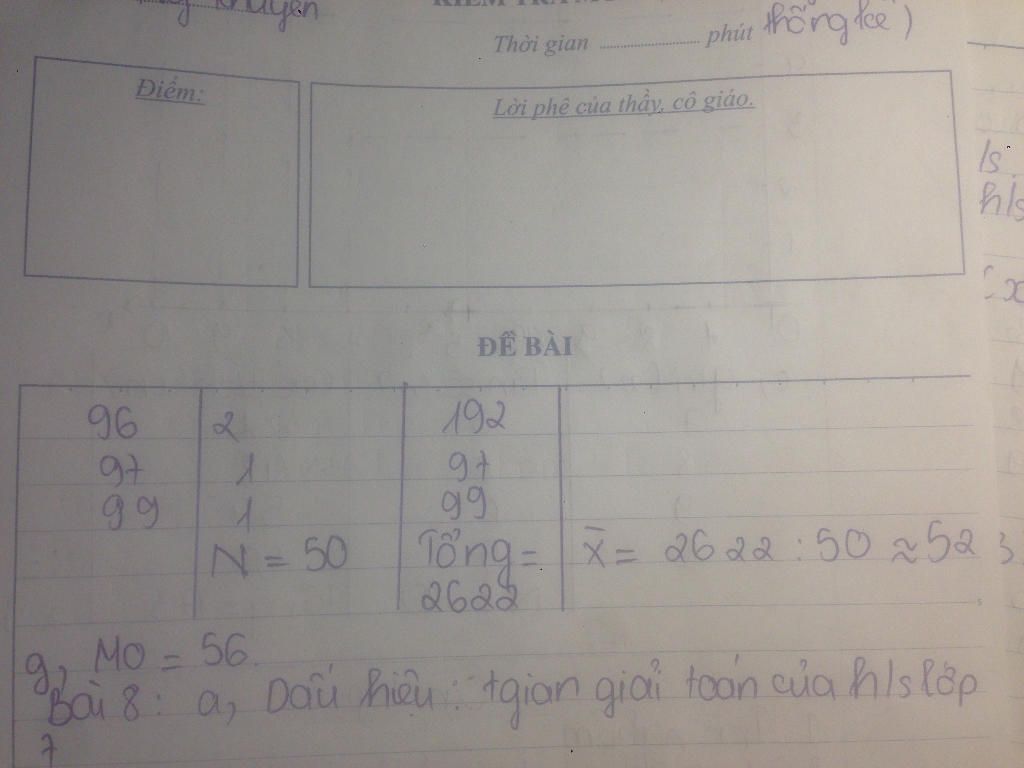 khuyên
KIỂM TRA M
Thời gian .................. phút thống kê)
Điểm:
Lời phê của thầy, cô giáo.
ls
h/s
ĐỀ BÀI
96 2 192
97 1 97
99 1 99
N = 50 Tổng = X̄ = 2622 : 50 ≈ 52
2622
g, M0 = 56.
Bài 8 : a, Dấu hiệu : tgian giải toán của h/s lớp
7